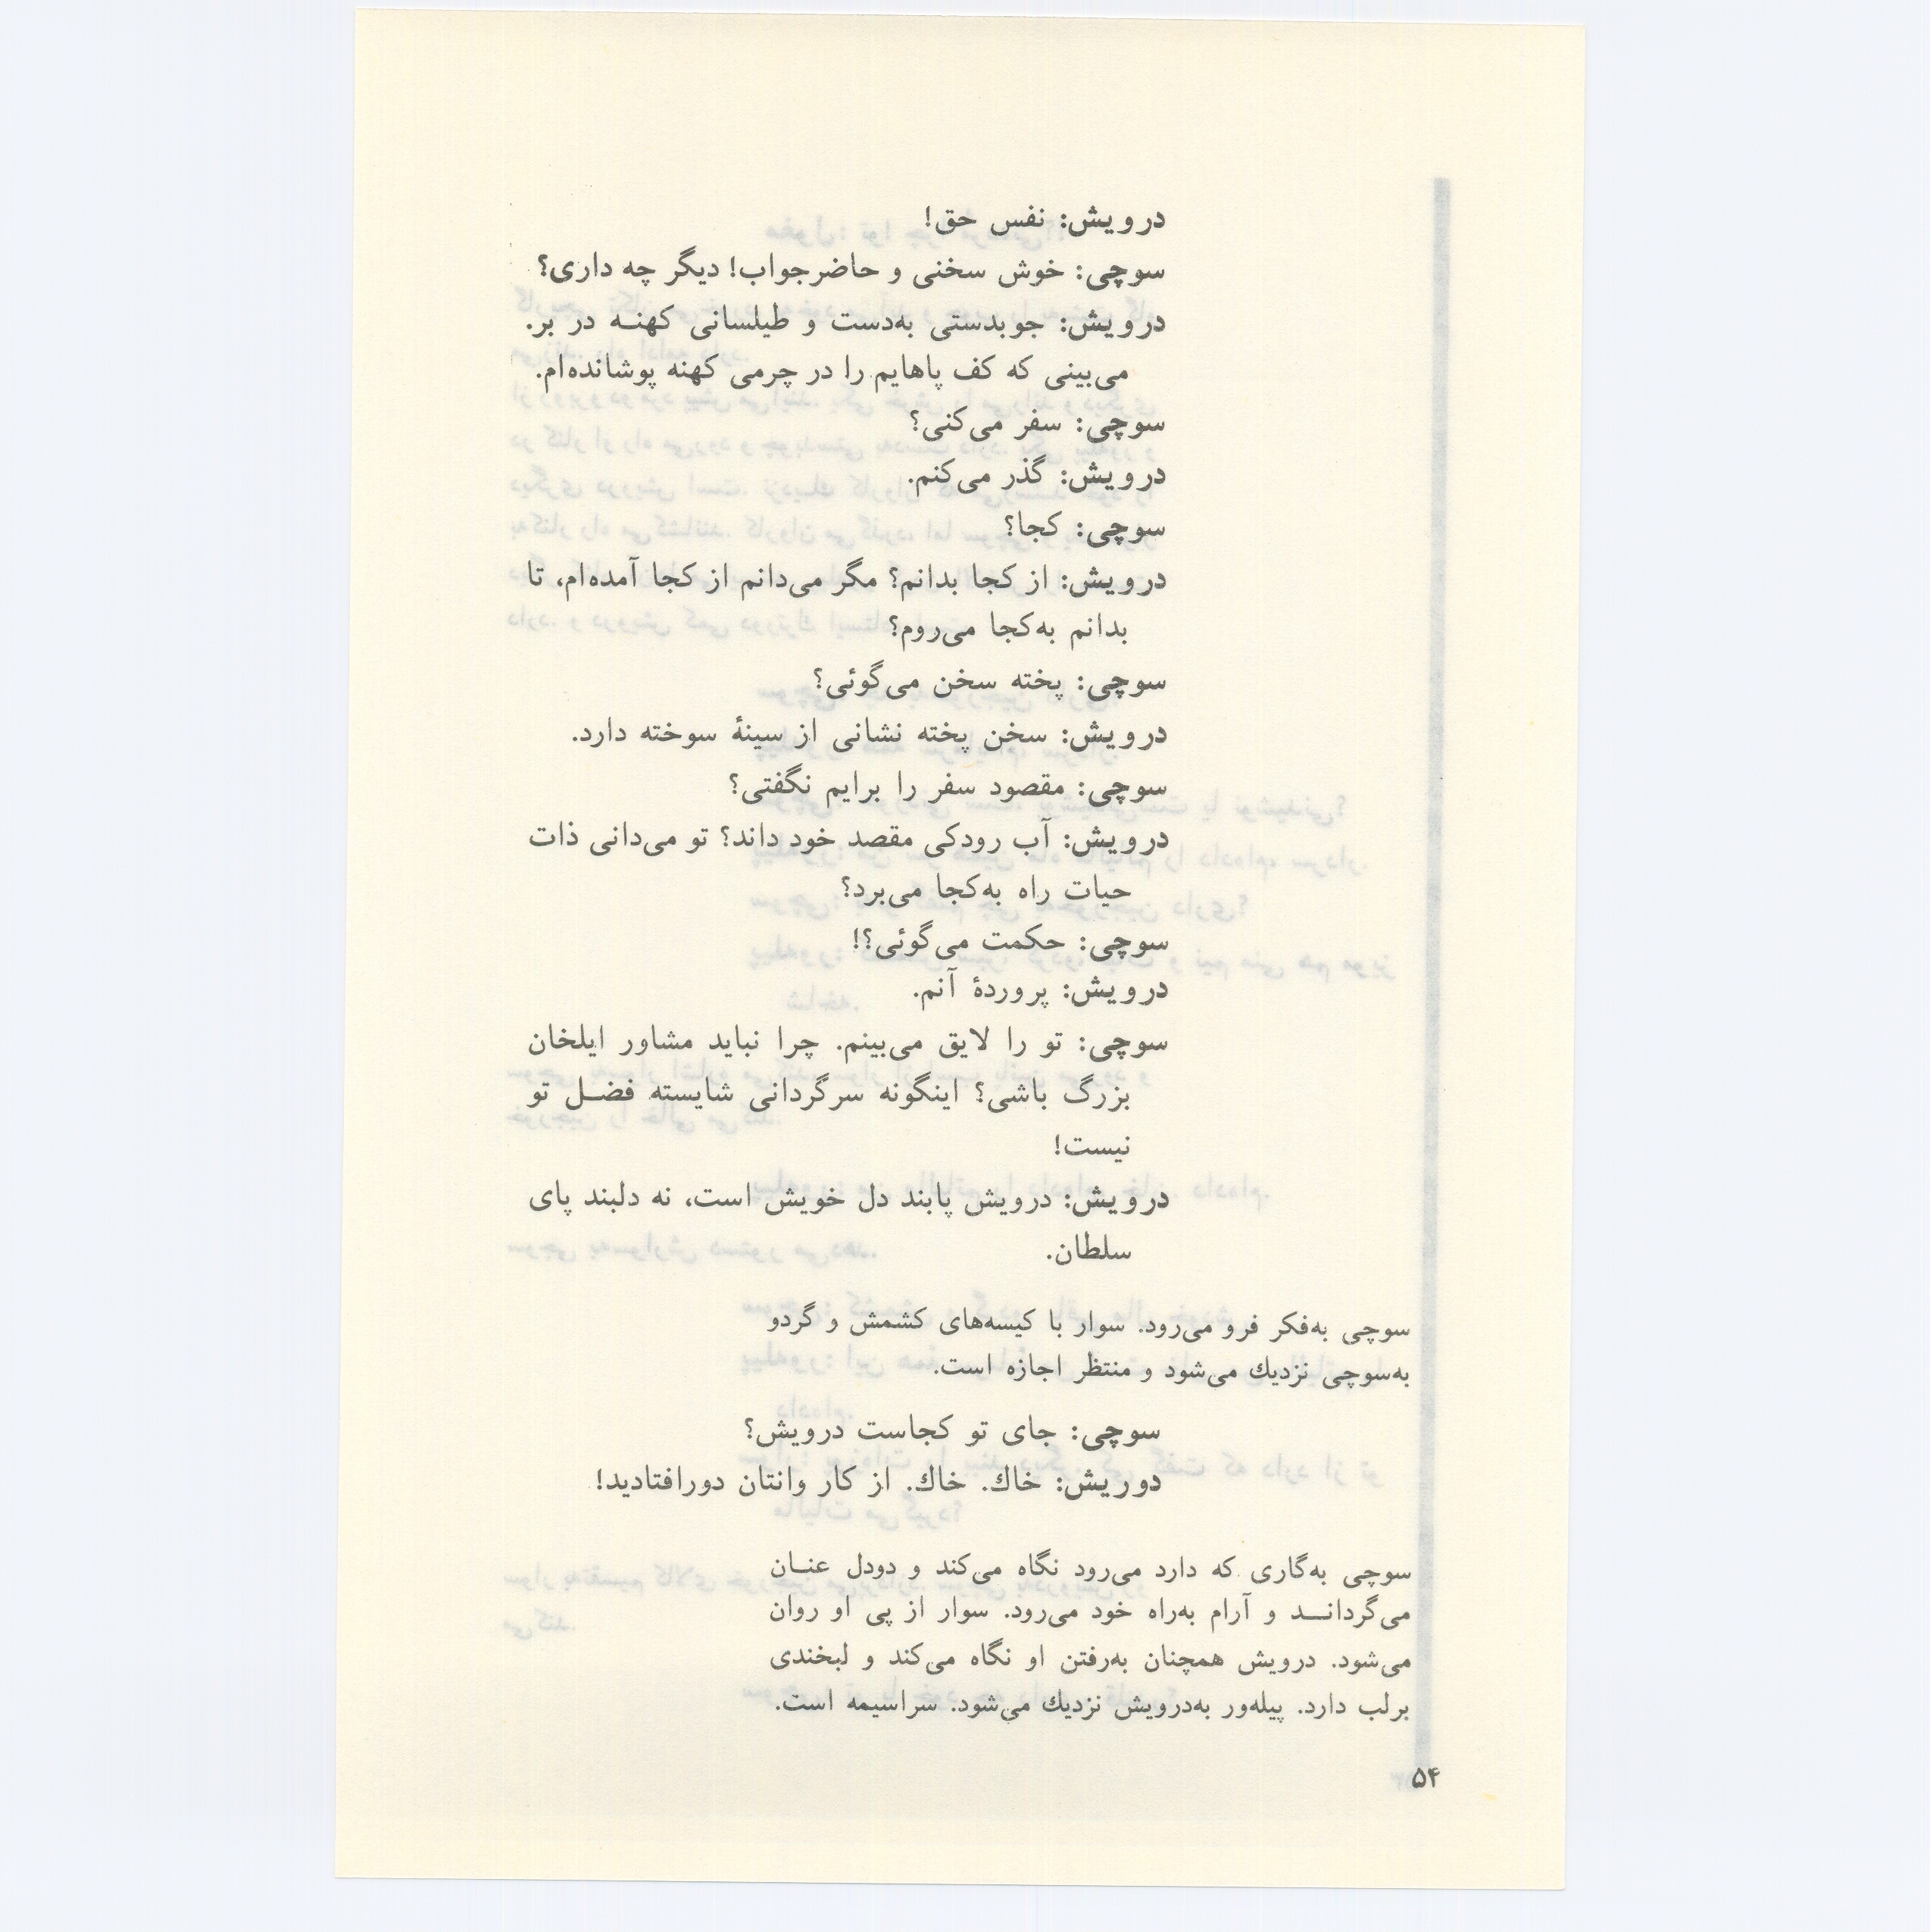 درویش: نفس حق!
سوچی: خوش سخنی و حاضرجواب! دیگر چه داری؟
درویش: جوبدستی به‌دست و طیلسانی کهنـه در بر.
می‌بینی که کف پاهایم را در چرمی کهنه پوشانده‌ام.
سوچی: سفر می‌کنی؟
درویش: گذر می‌کنم.
سوچی: کجا؟
درویش: از کجا بدانم؟ مگر می‌دانم از کجا آمده‌ام، تا
بدانم به‌کجا می‌روم؟
سوچی: پخته سخن می‌گوئی؟
درویش: سخن پخته نشانی از سینهٔ سوخته دارد.
سوچی: مقصود سفر را برایم نگفتی؟
درویش: آب رودکی مقصد خود داند؟ تو می‌دانی ذات
حیات راه به‌کجا می‌برد؟
سوچی: حکمت می‌گوئی؟!
درویش: پروردهٔ آنم.
سوچی: تو را لایق می‌بینم. چرا نباید مشاور ایلخان
بزرگ باشی؟ اینگونه سرگردانی شایسته فضـل تو
نیست!
درویش: درویش پابند دل خویش است، نه دلبند پای
سلطان.
سوچی به‌فکر فرو می‌رود. سوار با کیسه‌های کشمش و گردو
به‌سوچی نزدیك می‌شود و منتظر اجازه است.
سوچی: جای تو کجاست درویش؟
دوریش: خاك. خاك. از کار وانتان دورافتادید!
سوچی به‌گاری که دارد می‌رود نگاه می‌کند و دودل عنـان
می‌گردانـــد و آرام به‌راه خود می‌رود. سوار از پی او روان
می‌شود. درویش همچنان به‌رفتن او نگاه می‌کند و لبخندی
برلب دارد. پیله‌ور به‌درویش نزدیك می‌شود. سراسیمه است.
۵۴